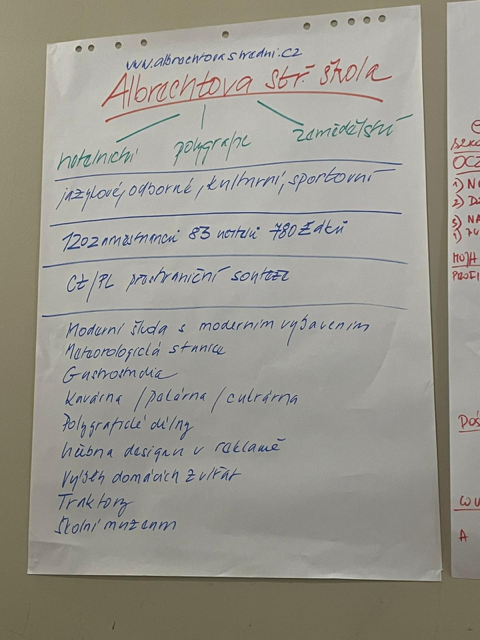 www.albrechtovastredni.cz
Albrechtova stř. škola
hotelnictví polygrafie zemědělství
jazykové, odborné, kulturní, sportovní
120 zaměstnanců 83 učitelů 780 žáků
CZ/PL prostraniční soutěže
Moderní škola s moderním vybavením
Meteorologická stanice
Gastrostudia
Kavárna / palárna / cukrárna
Polygrafické dílny
učebna designu v reklamě
Výběh domácích zvířat
Traktory
Školní muzeum
OCZ
1)
2)
MOJA
A